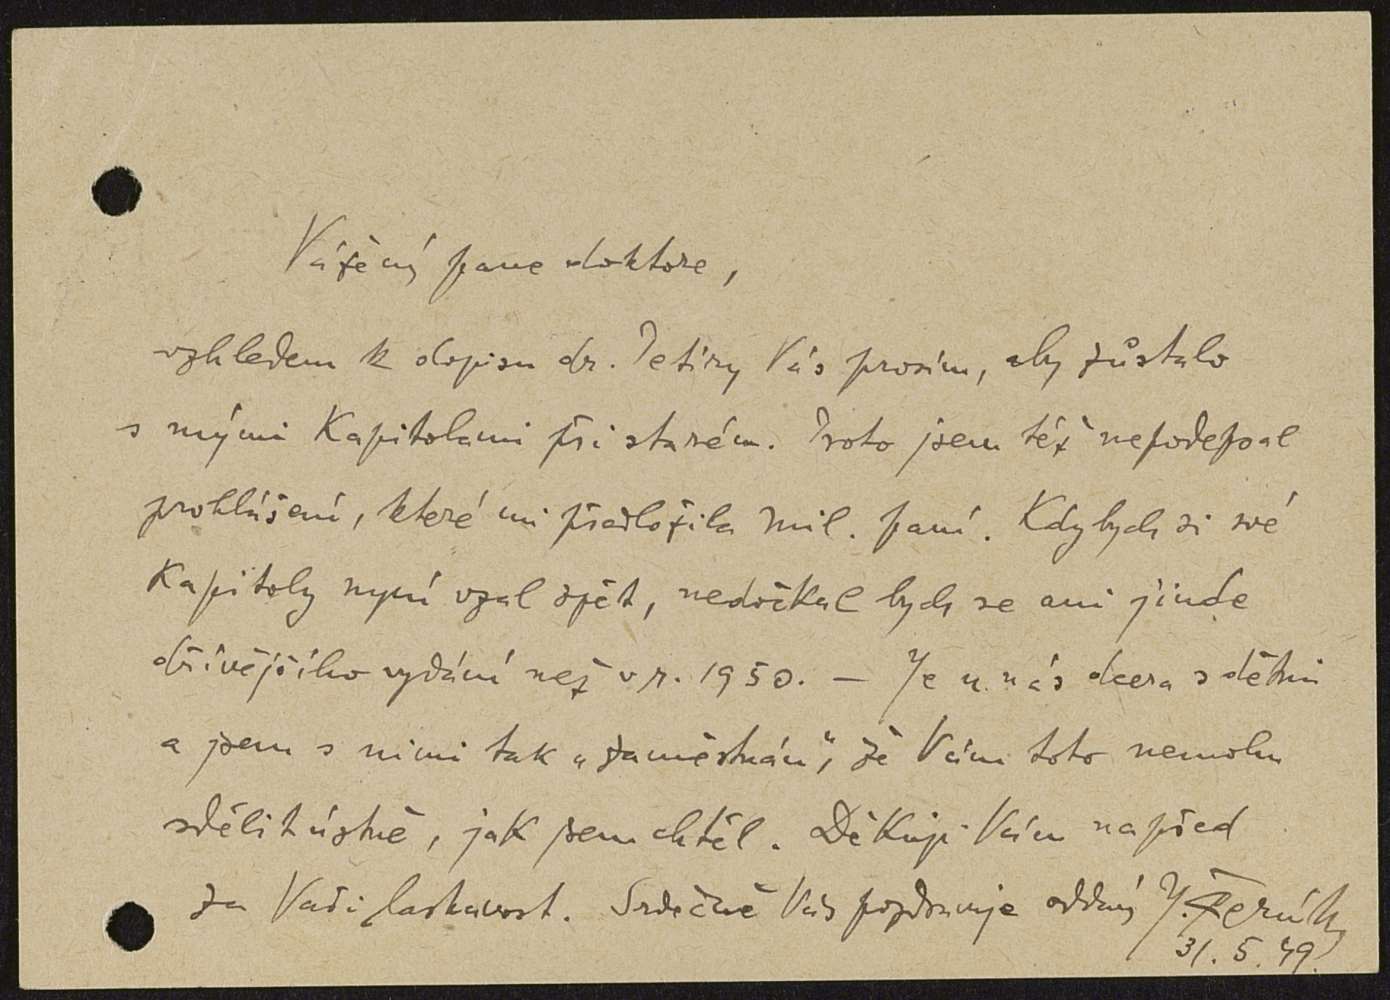 Vážený pane doktore,
vzhledem k dopisu dr. Petíry Vás prosím, aby zůstalo
s mými Kapitolami při starém. Proto jsem též nepodepsal
prohlášení, které mi předložila mil. paní. Kdybych si své
Kapitoly nyní vzal zpět, nedočkal bych se ani jinde
dřívějšího vydání než v r. 1950. — Je u nás dcera s dětmi
a jsem s nimi tak „zaměstnán", že Vám toto nemohu
sdělit ústně, jak jsem chtěl. Děkuji Vám napřed
za Vaši laskavost. Srdečně Vás pozdravuje oddaný J.
31. 5. 49.